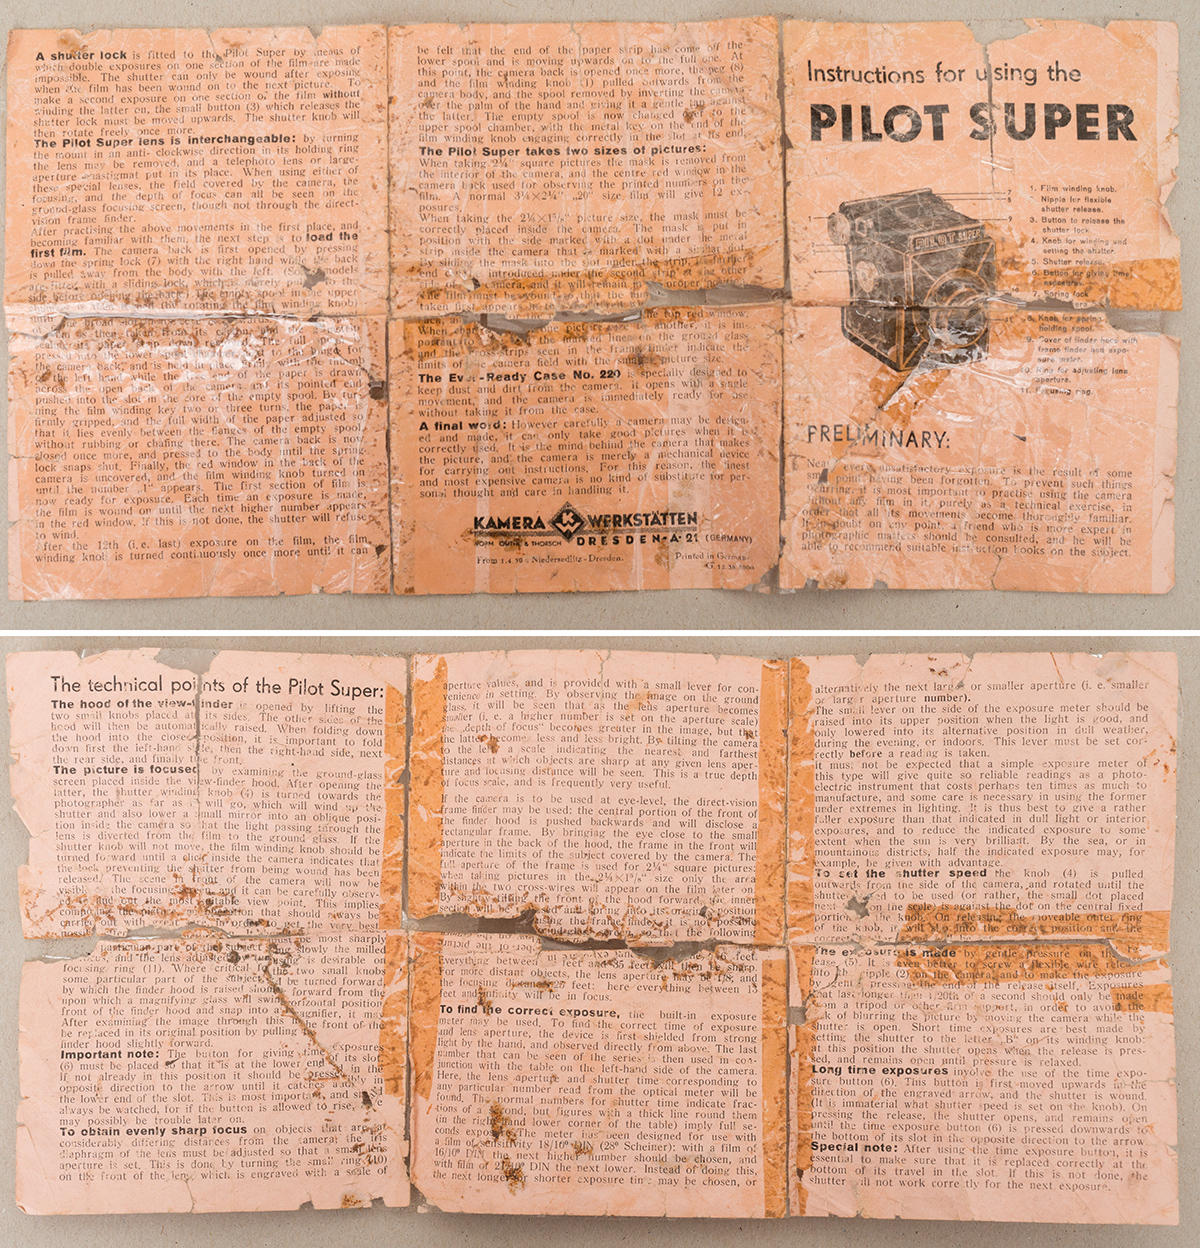 A shutter lock is fitted to the Pilot Super by means of
which double exposures on one section of the film are made
impossible. The shutter can only be wound after exposing
when the film has been wound on to the next picture. To
make a second exposure on one section of the film without
winding the latter on, the small button (3) which releases the
shutter lock must be moved upwards. The shutter knob will
then rotate freely once more.
The Pilot Super lens is interchangeable: by turning
the mount in an anti-clockwise direction in its holding ring
the lens may be removed, and a telephoto lens or large-
aperture anastigmat put in its place. When using either of
these special lenses, the field covered by the camera, the
focusing, and the depth of focus can all be seen on the
ground-glass focusing screen, though not through the direct-
vision frame finder.
After practising the above movements in the first place, and
becoming familiar with them, the next step is to load the
first film. The camera back is first opened by pressing
down the spring lock (7) with the right hand while the back
is pulled away from the body with the left. (Some models
are fitted with a sliding lock, which is merely pulled to the
side before opening the back.) The empty spool
rotating the film winding knob
The full
pressed into the lower
the camera back, and is held
of the left hand while the paper is drawn
across the open back of the camera and its pointed end
pushed into the slot in the core of the empty spool. By turn-
ing the film winding key two or three turns, the paper is
firmly gripped, and the full width of the paper adjusted so
that it lies evenly between the flanges of the empty spool
without rubbing or chafing there. The camera back is now
closed once more, and pressed to the body until the spring-
lock snaps shut. Finally, the red window in the back of the
camera is uncovered, and the film winding knob turned on
until the number „1" appears. The first section of film is
now ready for exposure. Each time an exposure is made,
the film is wound on until the next higher number appears
in the red window. If this is not done, the shutter will refuse
to wind.
After the 12th (i. e. last) exposure on the film, the film
winding knob is turned continuously once more until it can
be felt that the end of the paper strip has come off the
lower spool and is moving upwards on to the full one. At
this point, the camera back is opened once more, the peg (8)
and the film winding knob (1) pulled outwards from the
camera body, and the spool removed by inverting the camera
over the palm of the hand and giving it a gentle tap against
the latter. The empty spool is now changed over to the
upper spool chamber, with the metal key on the end of the
film winding knob engaging correctly in the slot at its end.
The Pilot Super takes two sizes of pictures:
When taking 2¼" square pictures the mask is removed from
the interior of the camera, and the centre red window in the
camera back used for observing the printed numbers on the
film. A normal 3¼×2¼" „20" size film will give 12 ex-
posures.
When taking the 2¼×1⅝" picture size, the mask must be
correctly placed inside the camera. The mask is put in
position with the side marked with a dot under the metal
strip inside the camera that is marked with a similar dot.
By sliding the mask into the slot under the strip, its further
end can be introduced under the second strip at the other
camera, and it will remain in its proper
the film must be wound so that the num
taken first appear
the top red window.
When changing picture size to another, it is im-
portant to lines in the ground glass,
and the cross strips seen in the frame finder indicate the
limits of the camera field with the smaller picture size.
The Ever-Ready Case No. 220 is specially designed to
keep dust and dirt from the camera. It opens with a single
movement, and the camera is immediately ready for use
without taking it from the case.
A final word: However carefully a camera may be design-
ed and made, it can only take good pictures when it is
correctly used. It is the mind behind the camera that makes
the picture, and the camera is merely a mechanical device
for carrying out instructions. For this reason, the finest
and most expensive camera is no kind of substitute for per-
sonal thought and care in handling it.
KAMERA KW WERKSTÄTTEN
VORM. GUTHE & THORSCH DRESDEN-A·21 (GERMANY)
From 1.4.39: Niedersedlitz-Dresden. Printed in Germany
Instructions for using the
PILOT SUPER
PILOT SUPER
1. Film winding knob.
Nipple for flexible
shutter release.
3. Button to release the
shutter lock.
4. Knob for winding and
setting the shutter.
5. Shutter release.
6. Button for giving time
exposures.
7. Spring lock
8. Knob for spring
holding spool.
9. Cover of finder hood with
frame finder and expo-
sure meter.
10. Ring for adjusting lens
aperture.
11. Focusing ring.
PRELIMINARY:
Nearly every unsatisfactory exposure is the result of some
small point having been forgotten. To prevent such things
occurring, it is most important to practise using the camera
without any film in it purely as a technical exercise, in
order that all its movements become thoroughly familiar.
If in doubt on any point, a friend who is more expert in
photographic matters should be consulted, and he will be
able to recommend suitable instruction books on the subject.
The technical points of the Pilot Super:
The hood of the view-finder is opened by lifting the
two small knobs placed at its sides. The other sides of the
hood will then be automatically raised. When folding down
the hood into the closed position, it is important to fold
down first the left-hand side, then the right-hand side, next
the rear side, and finally the front.
The picture is focused by examining the ground-glass
screen placed inside the view-finder hood. After opening the
latter, the shutter winding knob (4) is turned towards the
photographer as far as it will go, which will wind up the
shutter and also lower a small mirror into an oblique posi-
tion inside the camera so that the light passing through the
lens is diverted from the film to the ground glass. If the
shutter knob will not move, the film winding knob should be
turned forward until a click inside the camera indicates that
the lock preventing the shutter from being wound has been
released. The scene in front of the camera will now be
visible on the focusing screen, and it can be carefully observ-
ed to find out the most suitable view point. This implies
composing the picture, an operation that should always be
carried out in order to get the very best
possible
particular part of the subject most sharply
and the lens adjusted by turning slowly the milled
focusing ring (11). Where critical is desirable on
some particular part of the object, the two small knobs
by which the finder hood is raised should be turned forward
upon which a magnifying glass will swing forward from the
front of the finder hood and snap into a horizontal position
After examining the image through this magnifier, it may
be replaced in its original position by pulling the front of the
finder hood slightly forward.
Important note: The button for giving time exposures
(6) must be placed so that it is at the lower end of its slot.
If not already in this position it should be pressed in the
opposite direction to the arrow until it catches audibly in
the lower end of the slot. This is most important, and should
always be watched, for if the button is allowed to rise, there
may possibly be trouble later on.
To obtain evenly sharp focus on objects that are at
considerably differing distances from the camera, the iris
diaphragm of the lens must be adjusted so that a small lens
aperture is set. This is done by turning the small ring (10)
on the front of the lens, which is engraved with a scale of
aperture values, and is provided with a small lever for con-
venience in setting. By observing the image on the ground
glass, it will be seen that as the lens aperture becomes
smaller (i. e. a higher number is set on the aperture scale)
the „depth of focus" becomes greater in the image, but that
the latter become less and less bright. By tilting the camera
to the left a scale indicating the nearest and farthest
distances at which objects are sharp at any given lens aper-
ture and focusing distance will be seen. This is a true depth
of focus scale, and is frequently very useful.
If the camera is to be used at eye-level, the direct-vision
frame-finder may be used: the central portion of the front of
the finder hood is pushed backwards and will disclose a
rectangular frame. By bringing the eye close to the small
aperture in the back of the hood, the frame in the front will
indicate the limits of the subject covered by the camera. The
full aperture of the frame is used for 2¼" square pictures:
when taking pictures in the 2¼×1⅝" size only the area
within the two cross-wires will appear on the film later on.
By slightly lifting the front of the hood forward, the inner
section will be spring into its original position
using the frame finder, it is not possible
so that the following
everything between and 35 feet will then be sharp.
For more distant objects, the lens aperture may be f/8, and
focusing distance 25 feet: here everything between 13
feet and infinity will be in focus.
To find the correct exposure, the built-in exposure
meter may be used. To find the correct time of exposure
and lens aperture, the device is first shielded from strong
light by the hand, and observed directly from above. The last
number that can be seen of the series is then used in con-
junction with the table on the left-hand side of the camera.
Here, the lens aperture and shutter time corresponding to
any particular number read from the optical meter will be
found. The normal numbers for shutter time indicate frac-
tions of a second, but figures with a thick line round them
(in the right-hand lower corner of the table) imply full se-
conds exposure. The meter has been designed for use with
a film of sensitivity 18/10° DIN (28° Scheiner): with a film of
16/10° DIN the next higher number should be chosen, and
with film of 21/10° DIN the next lower. Instead of doing this,
the next longer or shorter exposure time may be chosen, or
alternatively the next larger or smaller aperture (i. e. smaller
or larger aperture number).
The small lever on the side of the exposure meter should be
raised into its upper position when the light is good, and
only lowered into its alternative position in dull weather,
during the evening, or indoors. This lever must be set cor-
rectly before a reading is taken.
it must not be expected that a simple exposure meter of
this type will give quite so reliable readings as a photo-
electric instrument that costs perhaps ten times as much to
manufacture, and some care is necessary in using the former
under extremes in lighting. It is thus best to give a rather
fuller exposure than that indicated in dull light or interior
exposures, and to reduce the indicated exposure to some
extent when the sun is very brilliant. By the sea, or in
mountainous districts, half the indicated exposure may, for
example, be given with advantage.
To set the shutter speed the knob (4) is pulled
outwards from the side of the camera, and rotated until the
shutter speed to be used (or rather, the small dot placed
next to it on the scale) is against the dot on the central fixed
portion of the knob. On releasing the moveable outer ring
of the knob, it will slip into the correct position and the
correct
The exposure is made by gentle pressure on the re-
lease, or even better to screw a flexible wire release
into the nipple (2) on the camera, and to make the exposure
by gently pressing the end of the release itself. Exposures
that last longer than 1/20th of a second should only be made
on a tripod or other firm support, in order to avoid the
risk of blurring the picture by moving the camera while the
shutter is open. Short time exposures are best made by
setting the shutter to the letter „B" on its winding knob:
at this position the shutter opens when the release is pres-
sed, and remains open until pressure is relaxed.
Long time exposures involve the use of the time expo-
sure button (6). This button is first moved upwards in the
direction of the engraved arrow, and the shutter is wound.
(It is immaterial what shutter speed is set on the knob). On
pressing the release, the shutter opens, and remains open
until the time exposure button (6) is pressed downwards to
the bottom of its slot in the opposite direction to the arrow.
Special note: After using the time exposure button, it is
essential to make sure that it is replaced correctly at the
bottom of its travel in the slot. If this is not done, the
shutter will not work correctly for the next exposure.